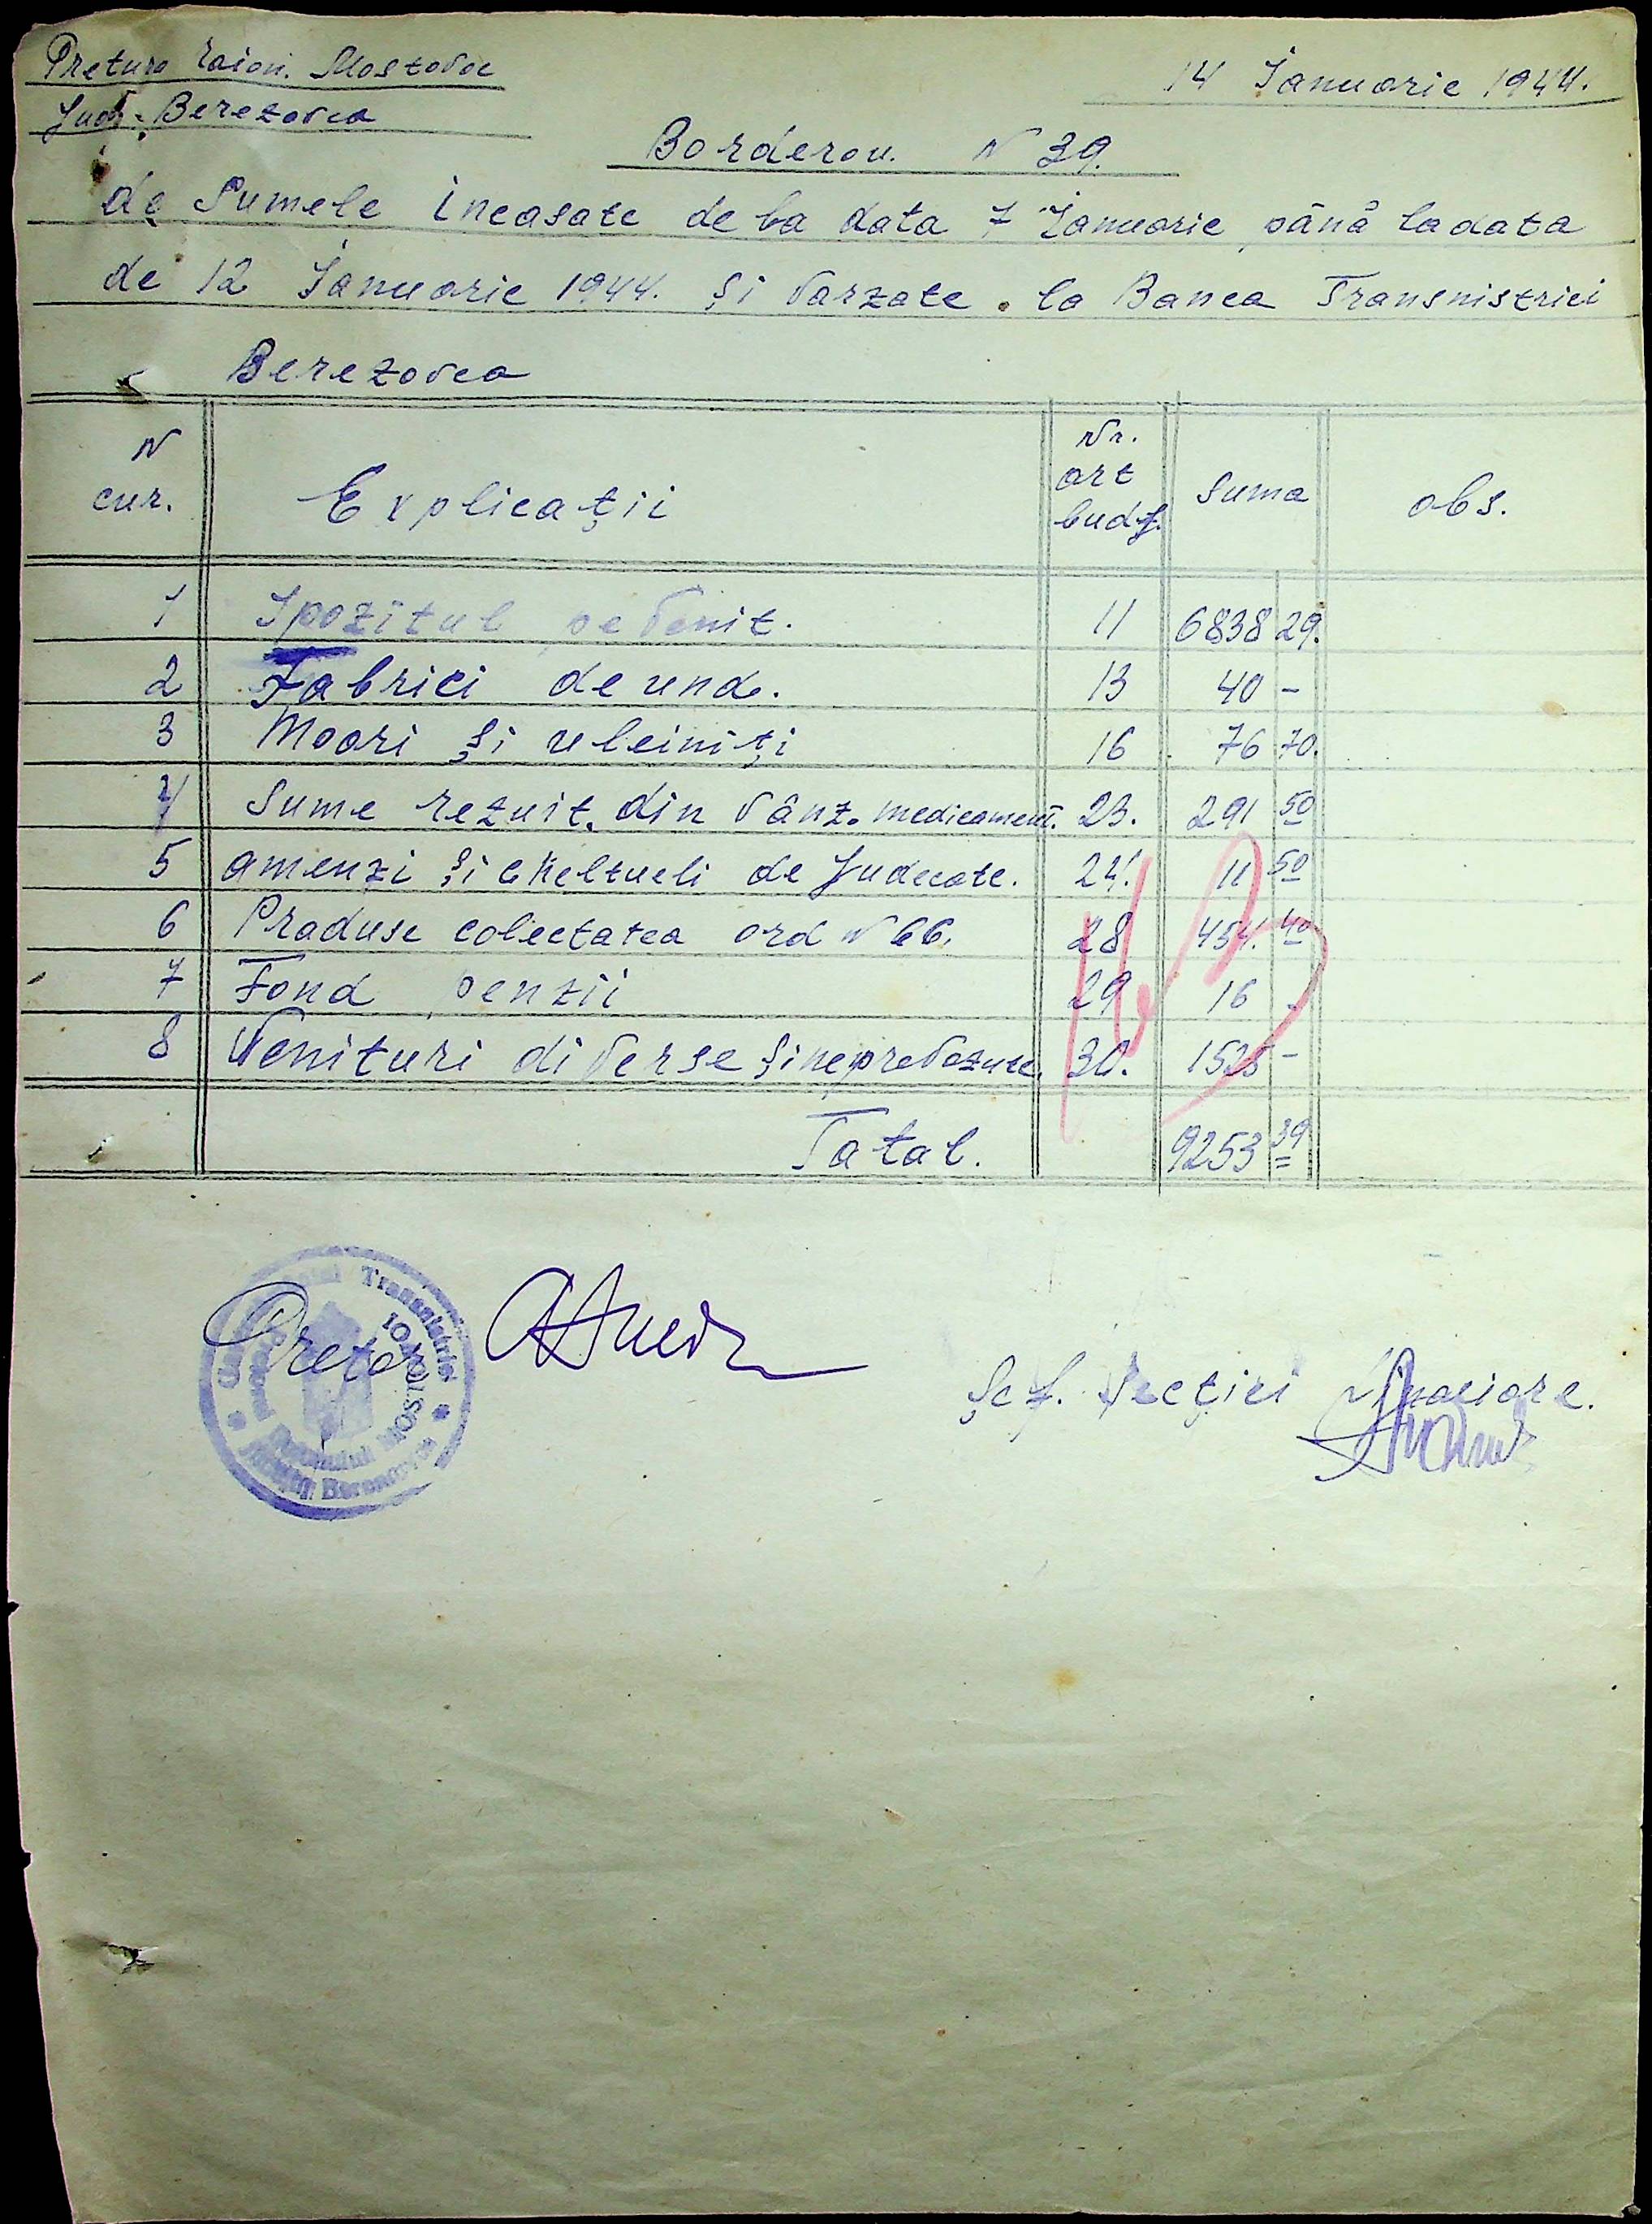 Pretura raion. Mostovoe
14 Ianuarie 1944.
Jud. Berezovca
Borderou. N 39.
de Sumele incasate de la data 7 Ianuarie până la data
de 12 Ianuarie 1944. și varzate la Banca Transnistriei
Berezovca
N cur. Explicații Nr. art budj. Suma obs.
1 Ipozitul pe venit. 11 6838 29.
2 Fabrici de und. 13 40 -
3 Moori și uleiniți 16 76 70.
4 Sume rezult. din vânz. medicament. 23. 291 50
5 amenzi și cheltueli de Judecate. 24. 11 50
6 Produse colectarea ord N 66. 28 454. 40
7 Fond penzii 29 16 -
8 Venituri diverse și neprevazute. 30. 1525 -
Total. 9253 39
Pretor
Șef. Secției Finaciare.